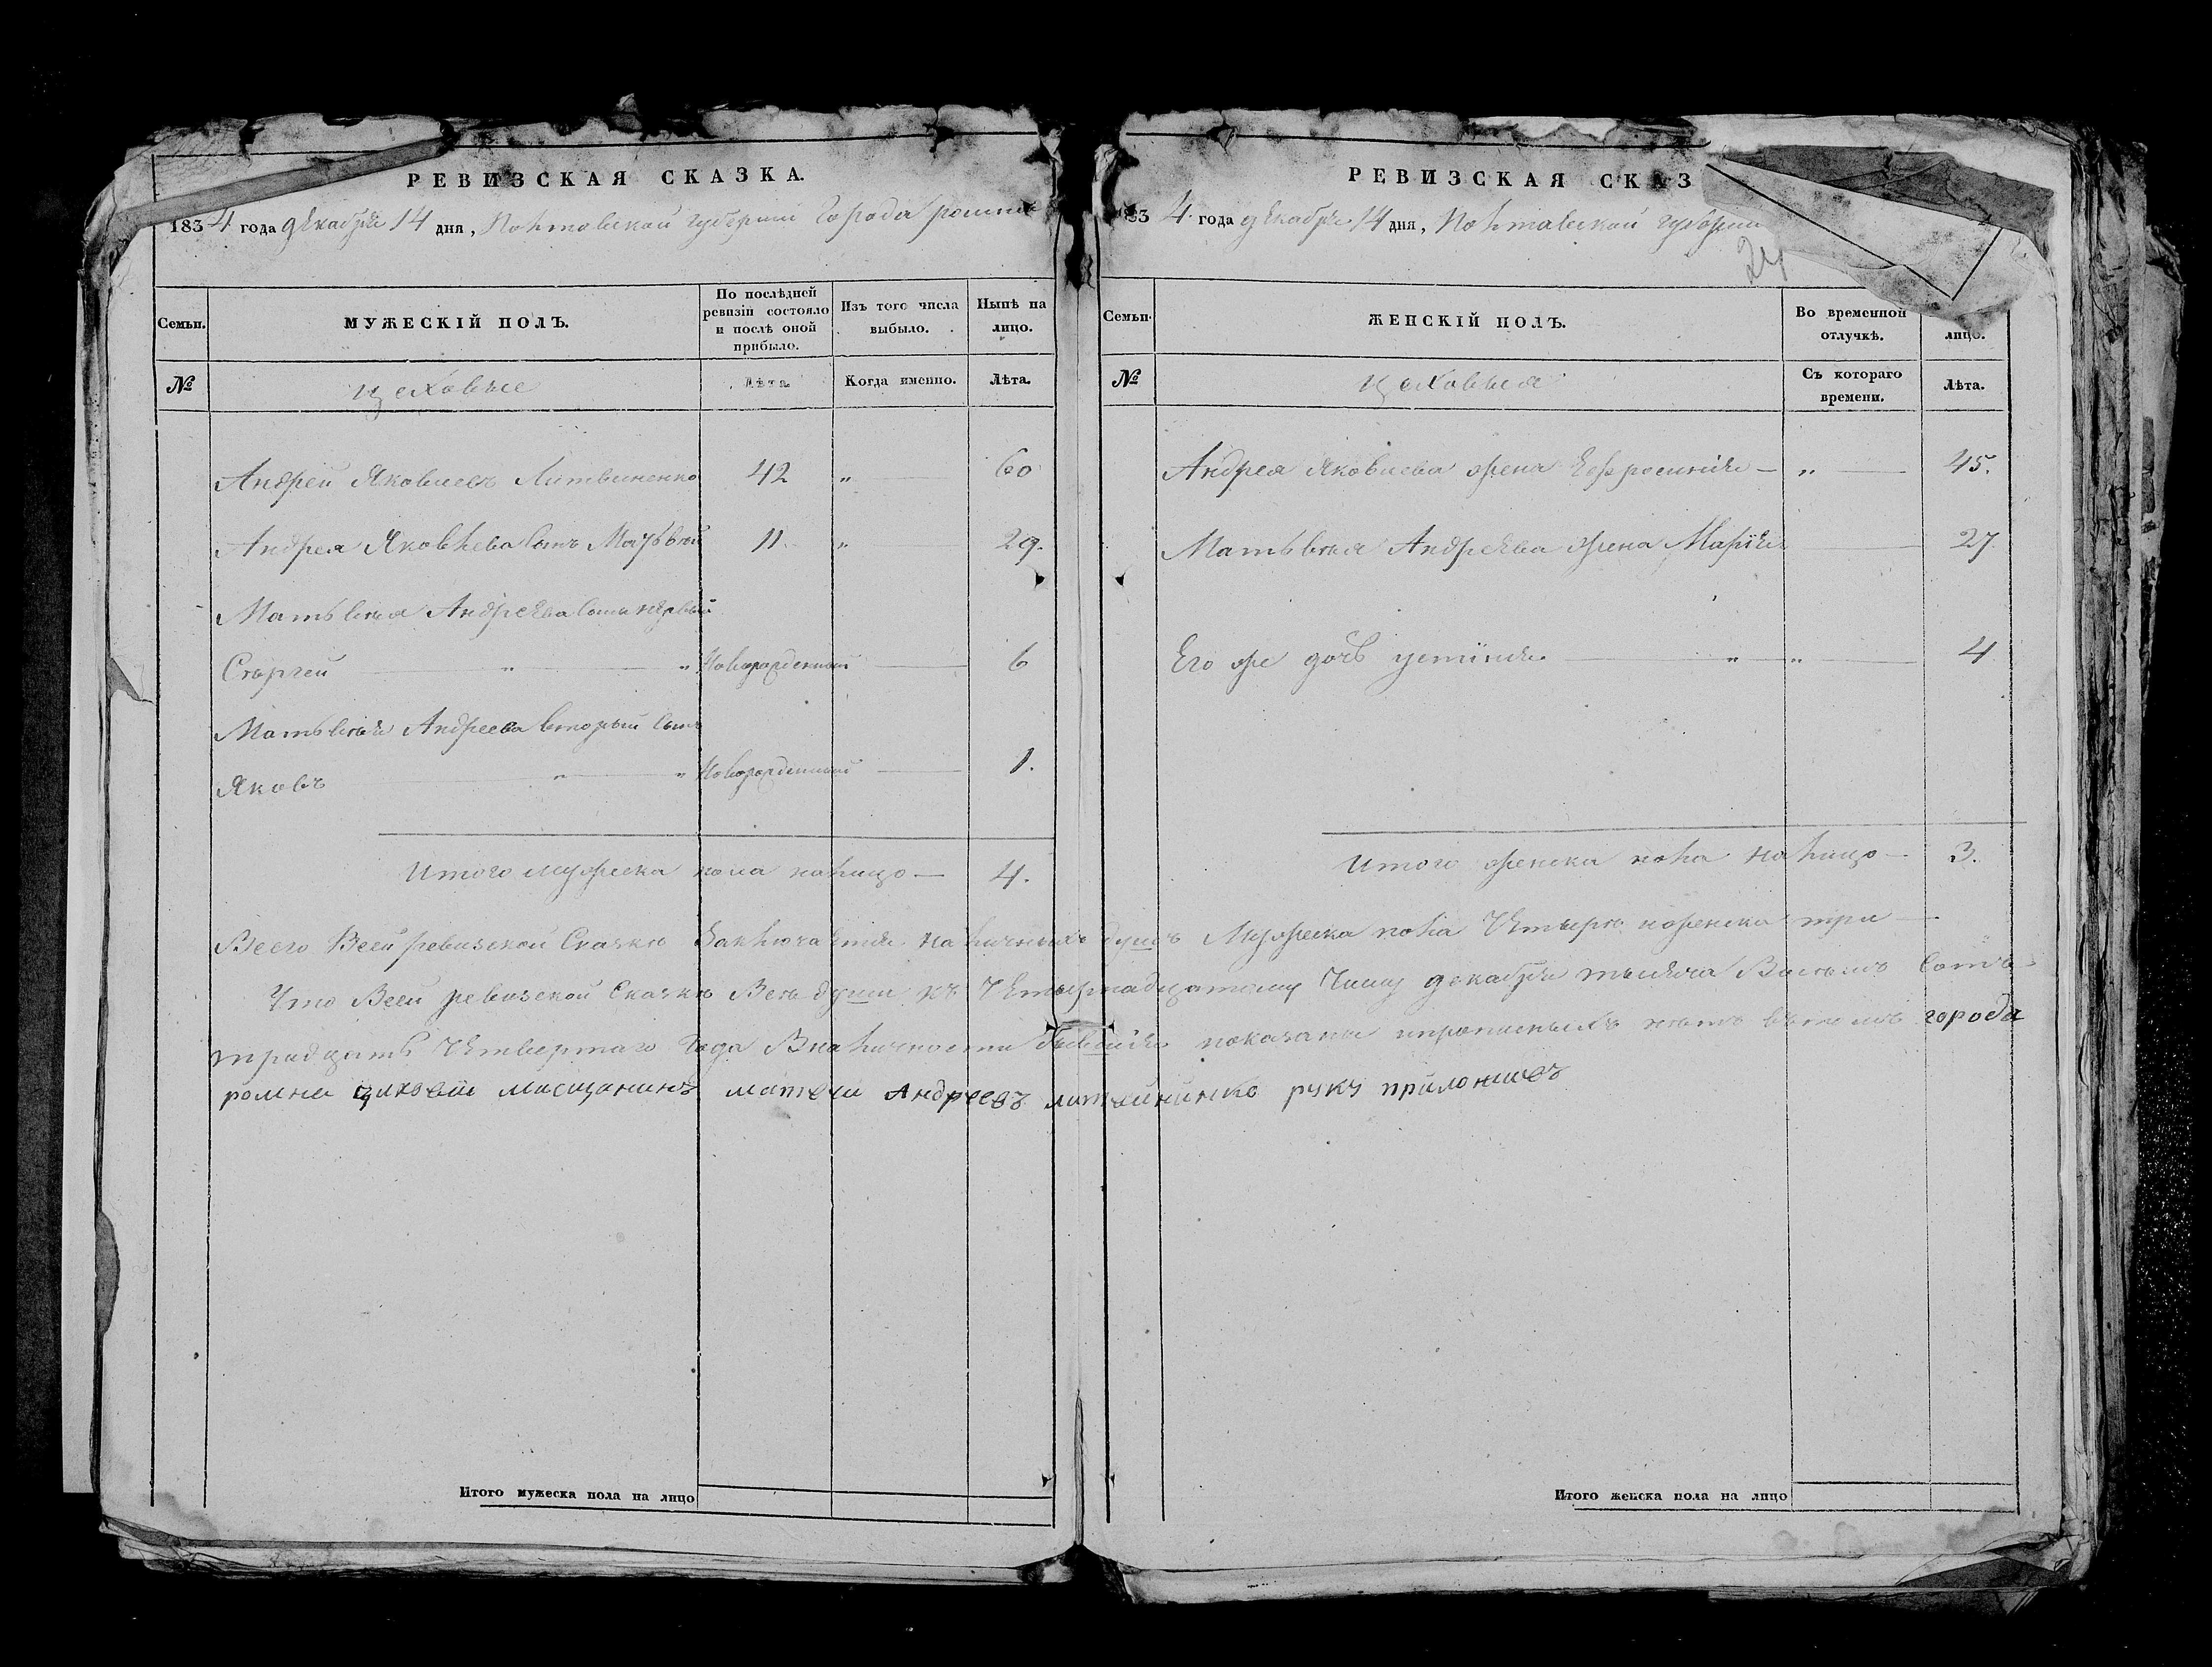 РЕВИЗСКАЯ СКАЗКА.
1834 года декабря 14 дня, Полтавской губернии Города ромна
Семьи. МУЖЕСКІЙ ПОЛЪ. По послѣдней ревизіи состояло и послѣ оной прибыло. Изъ того числа выбыло. Нынѣ на лицо.
№ цеховые Лѣта. Когда именно. Лѣта.
Андрей Яковлевъ Литвиненко 42 „ 60
Андрея Яковлева сынъ Матьвѣй 11 „ 29.
Матьвѣя Андреева сынъ первый
Сѣргей „ „ Новорожденный 6
Матьвѣя Андреева вторый сынъ
Яковъ „ „ Новорожденный 1.
Итого мужеска пола налицо — 4.
РЕВИЗСКАЯ СКАЗ
1834 года декабря 14 дня, Полтавской губернии
Семьи. ЖЕНСКІЙ ПОЛЪ. Во временной отлучкѣ. лицо.
№ цеховыя Съ котораго времени. Лѣта.
Андрея Яковлева жена Ефросиния — „ 45.
Матьвѣя Андреева жена Марія 27
Его же дочь устінія „ „ 4
Итого женска пола налицо — 3.
Всего Всей ревизской Сказкѣ Заключается наличныхъ душъ Мужеска пола Четыре иженска три —
Что Всей ревизской Сказкѣ Всѣ души къ Четырнадцатому Числу декабря тысяча Восемь Сотъ
тридцать Четвертаго Года Вналичности бывшія показаны ипрописныхъ нѣтъ вътомъ города
ромна циховій мисщанинъ матвѣи Андреевъ литвинйнко руку приложивъ
Итого мужеска пола на лицо
Итого женска пола на лицо